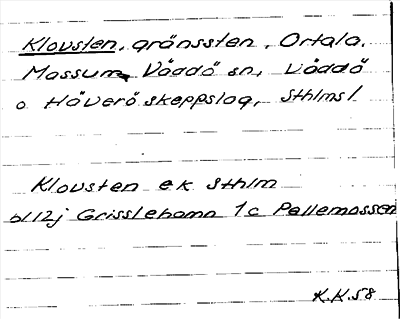 Klovsten, gränssten, Ortala,
Massum, Väddö sn, Väddö
o Häverö skeppslag, Sthlms l.
Klovsten ek Sthlm
bl 12j Grisslehamn 1c Pallemossen
K.H.58